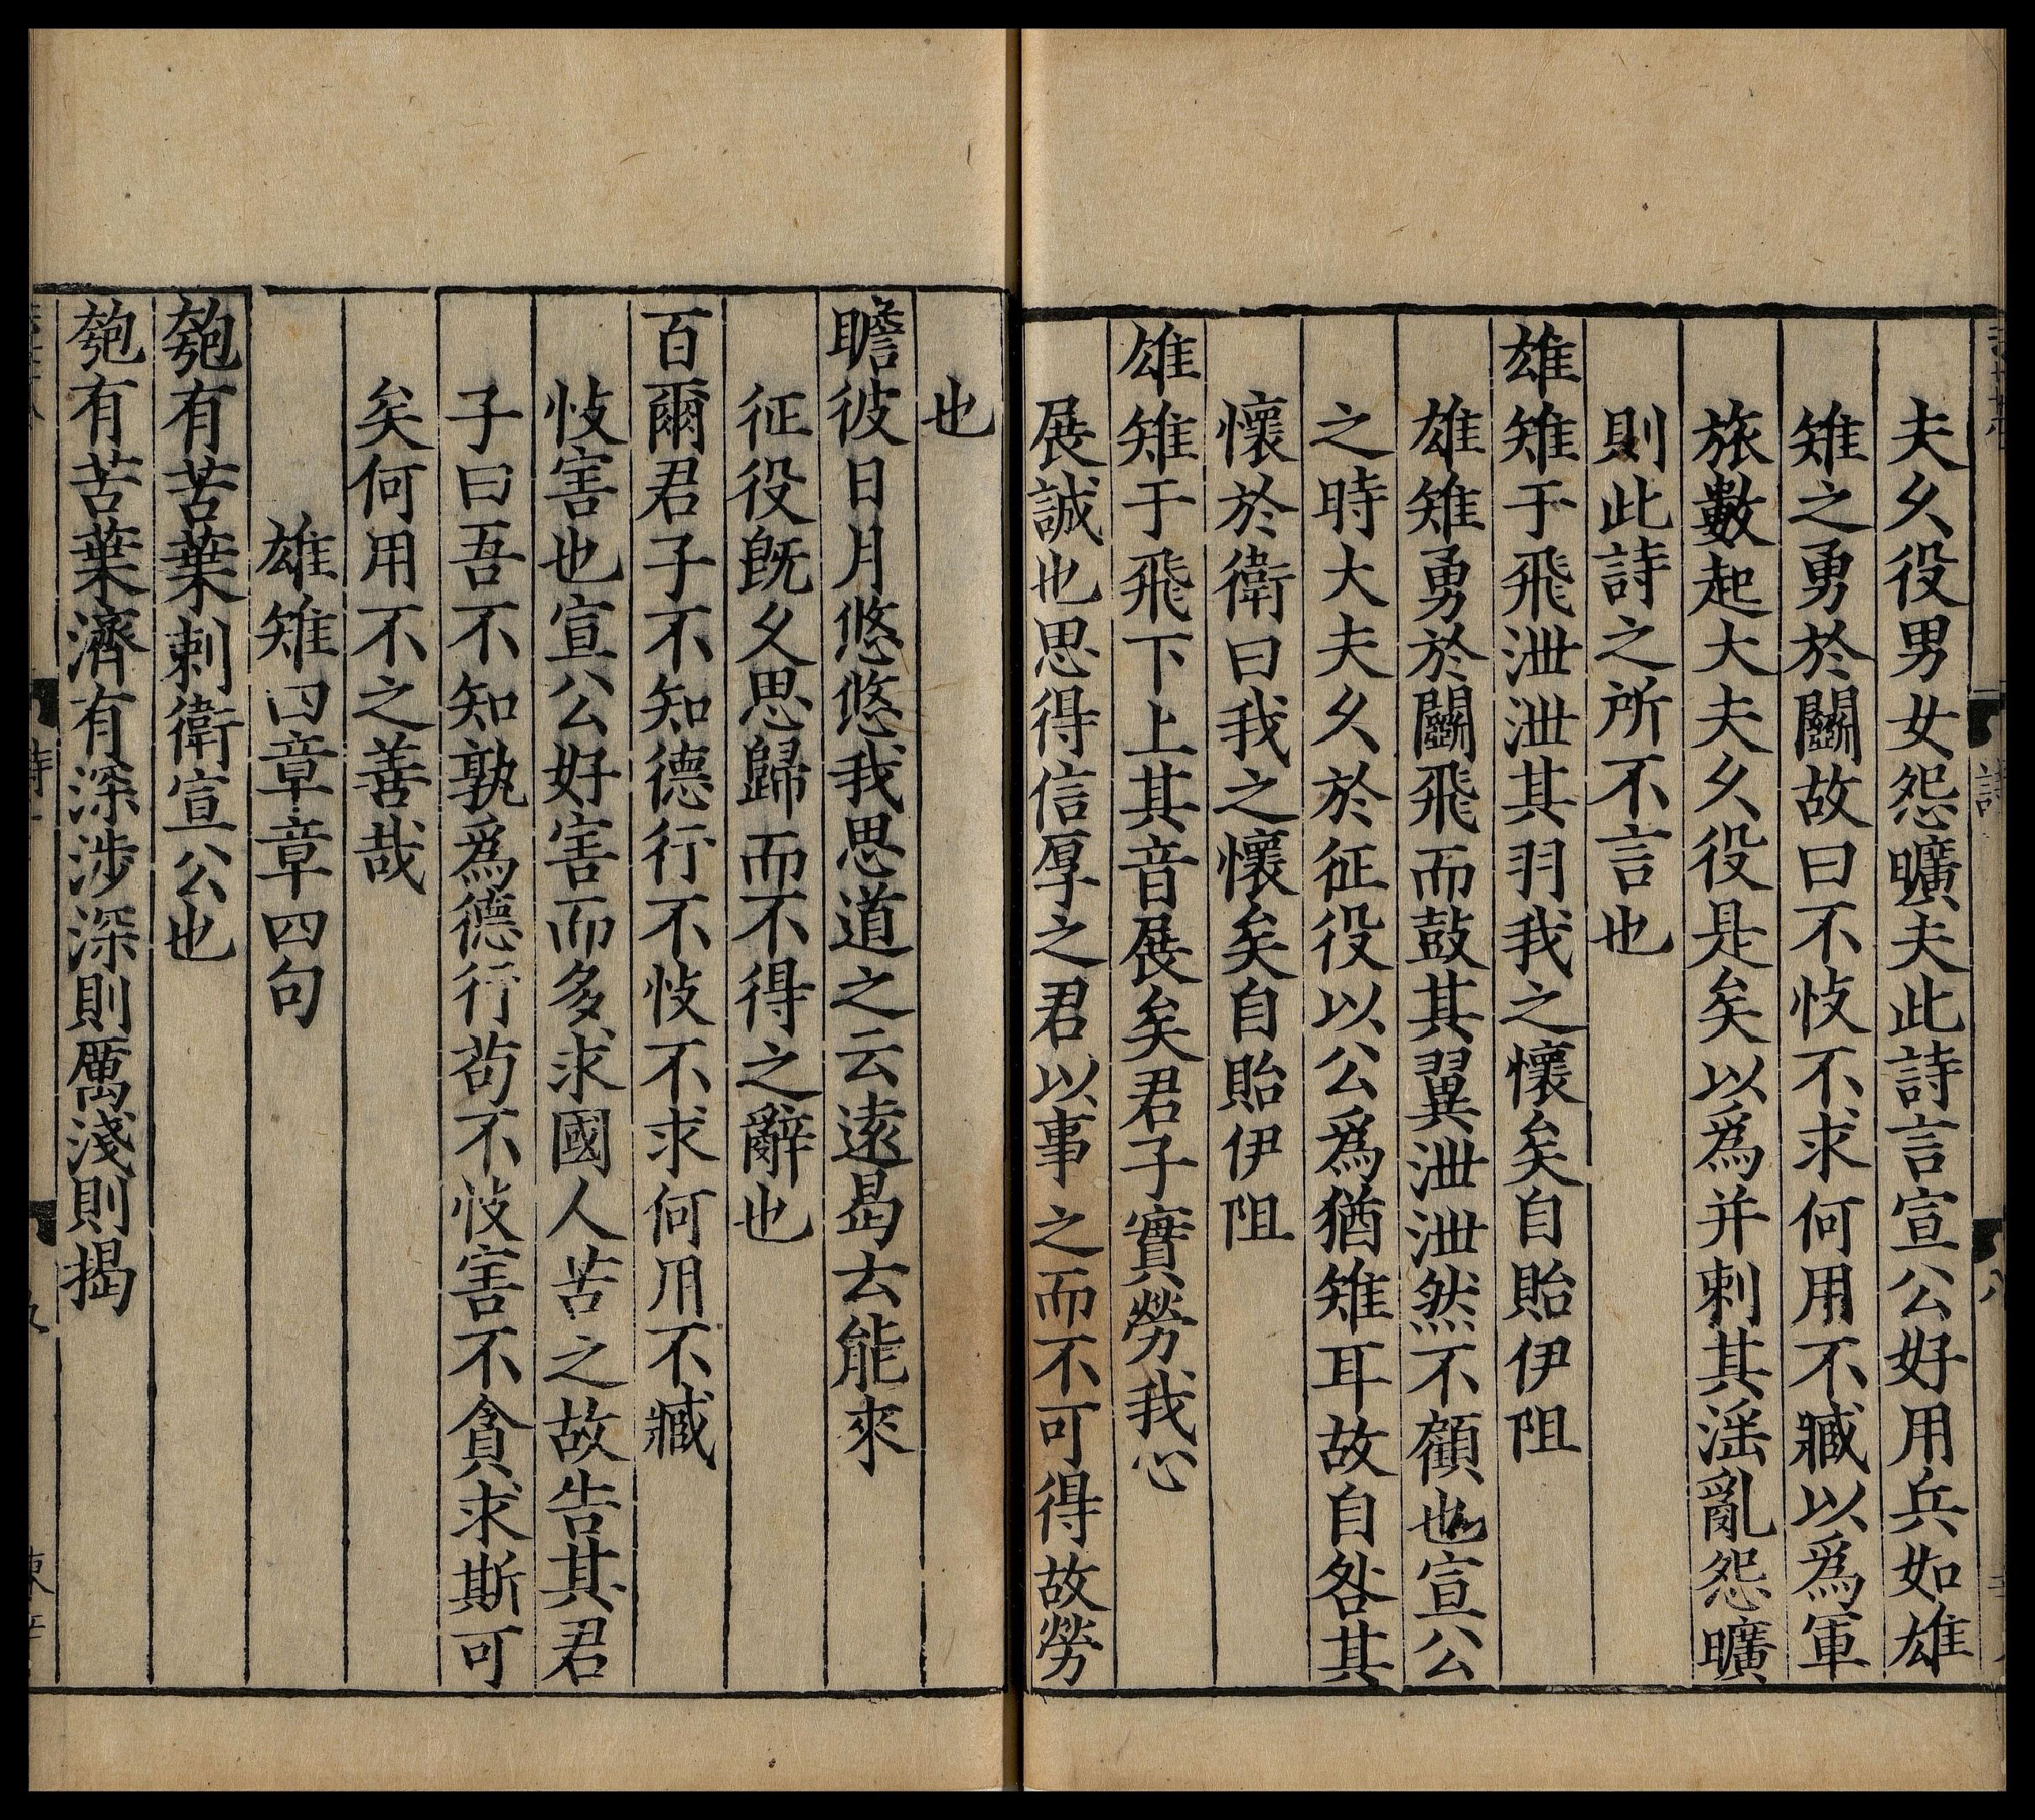 夫久役男女怨曠夫此詩言宣公好用兵如雄
雉之勇於鬭故曰不忮不求何用不臧以爲軍
旅數起大夫久役是矣以爲并刺其淫亂怨曠
則此詩之所不言也
雄雉于飛泄泄其羽我之懷矣自貽伊阻
雄雉勇於鬭飛而鼓其翼泄泄然不顧也宣公
之時大夫久於征役以公爲猶雉耳故自咎其
懷於衛曰我之懷矣自貽伊阻
雄雉于飛下上其音展矣君子實勞我心
展誠也思得信厚之君以事之而不可得故勞
也
瞻彼日月悠悠我思道之云遠曷去能來
征役旣久思歸而不得之辭也
百爾君子不知德行不忮不求何用不臧
忮害也宣公好害而多求國人苦之故告其君
子曰吾不知孰爲德行苟不忮害不貪求斯可
矣何用不之善哉
雄雉四章章四句
匏有苦葉刺衛宣公也
匏有苦葉濟有深涉深則厲淺則揭